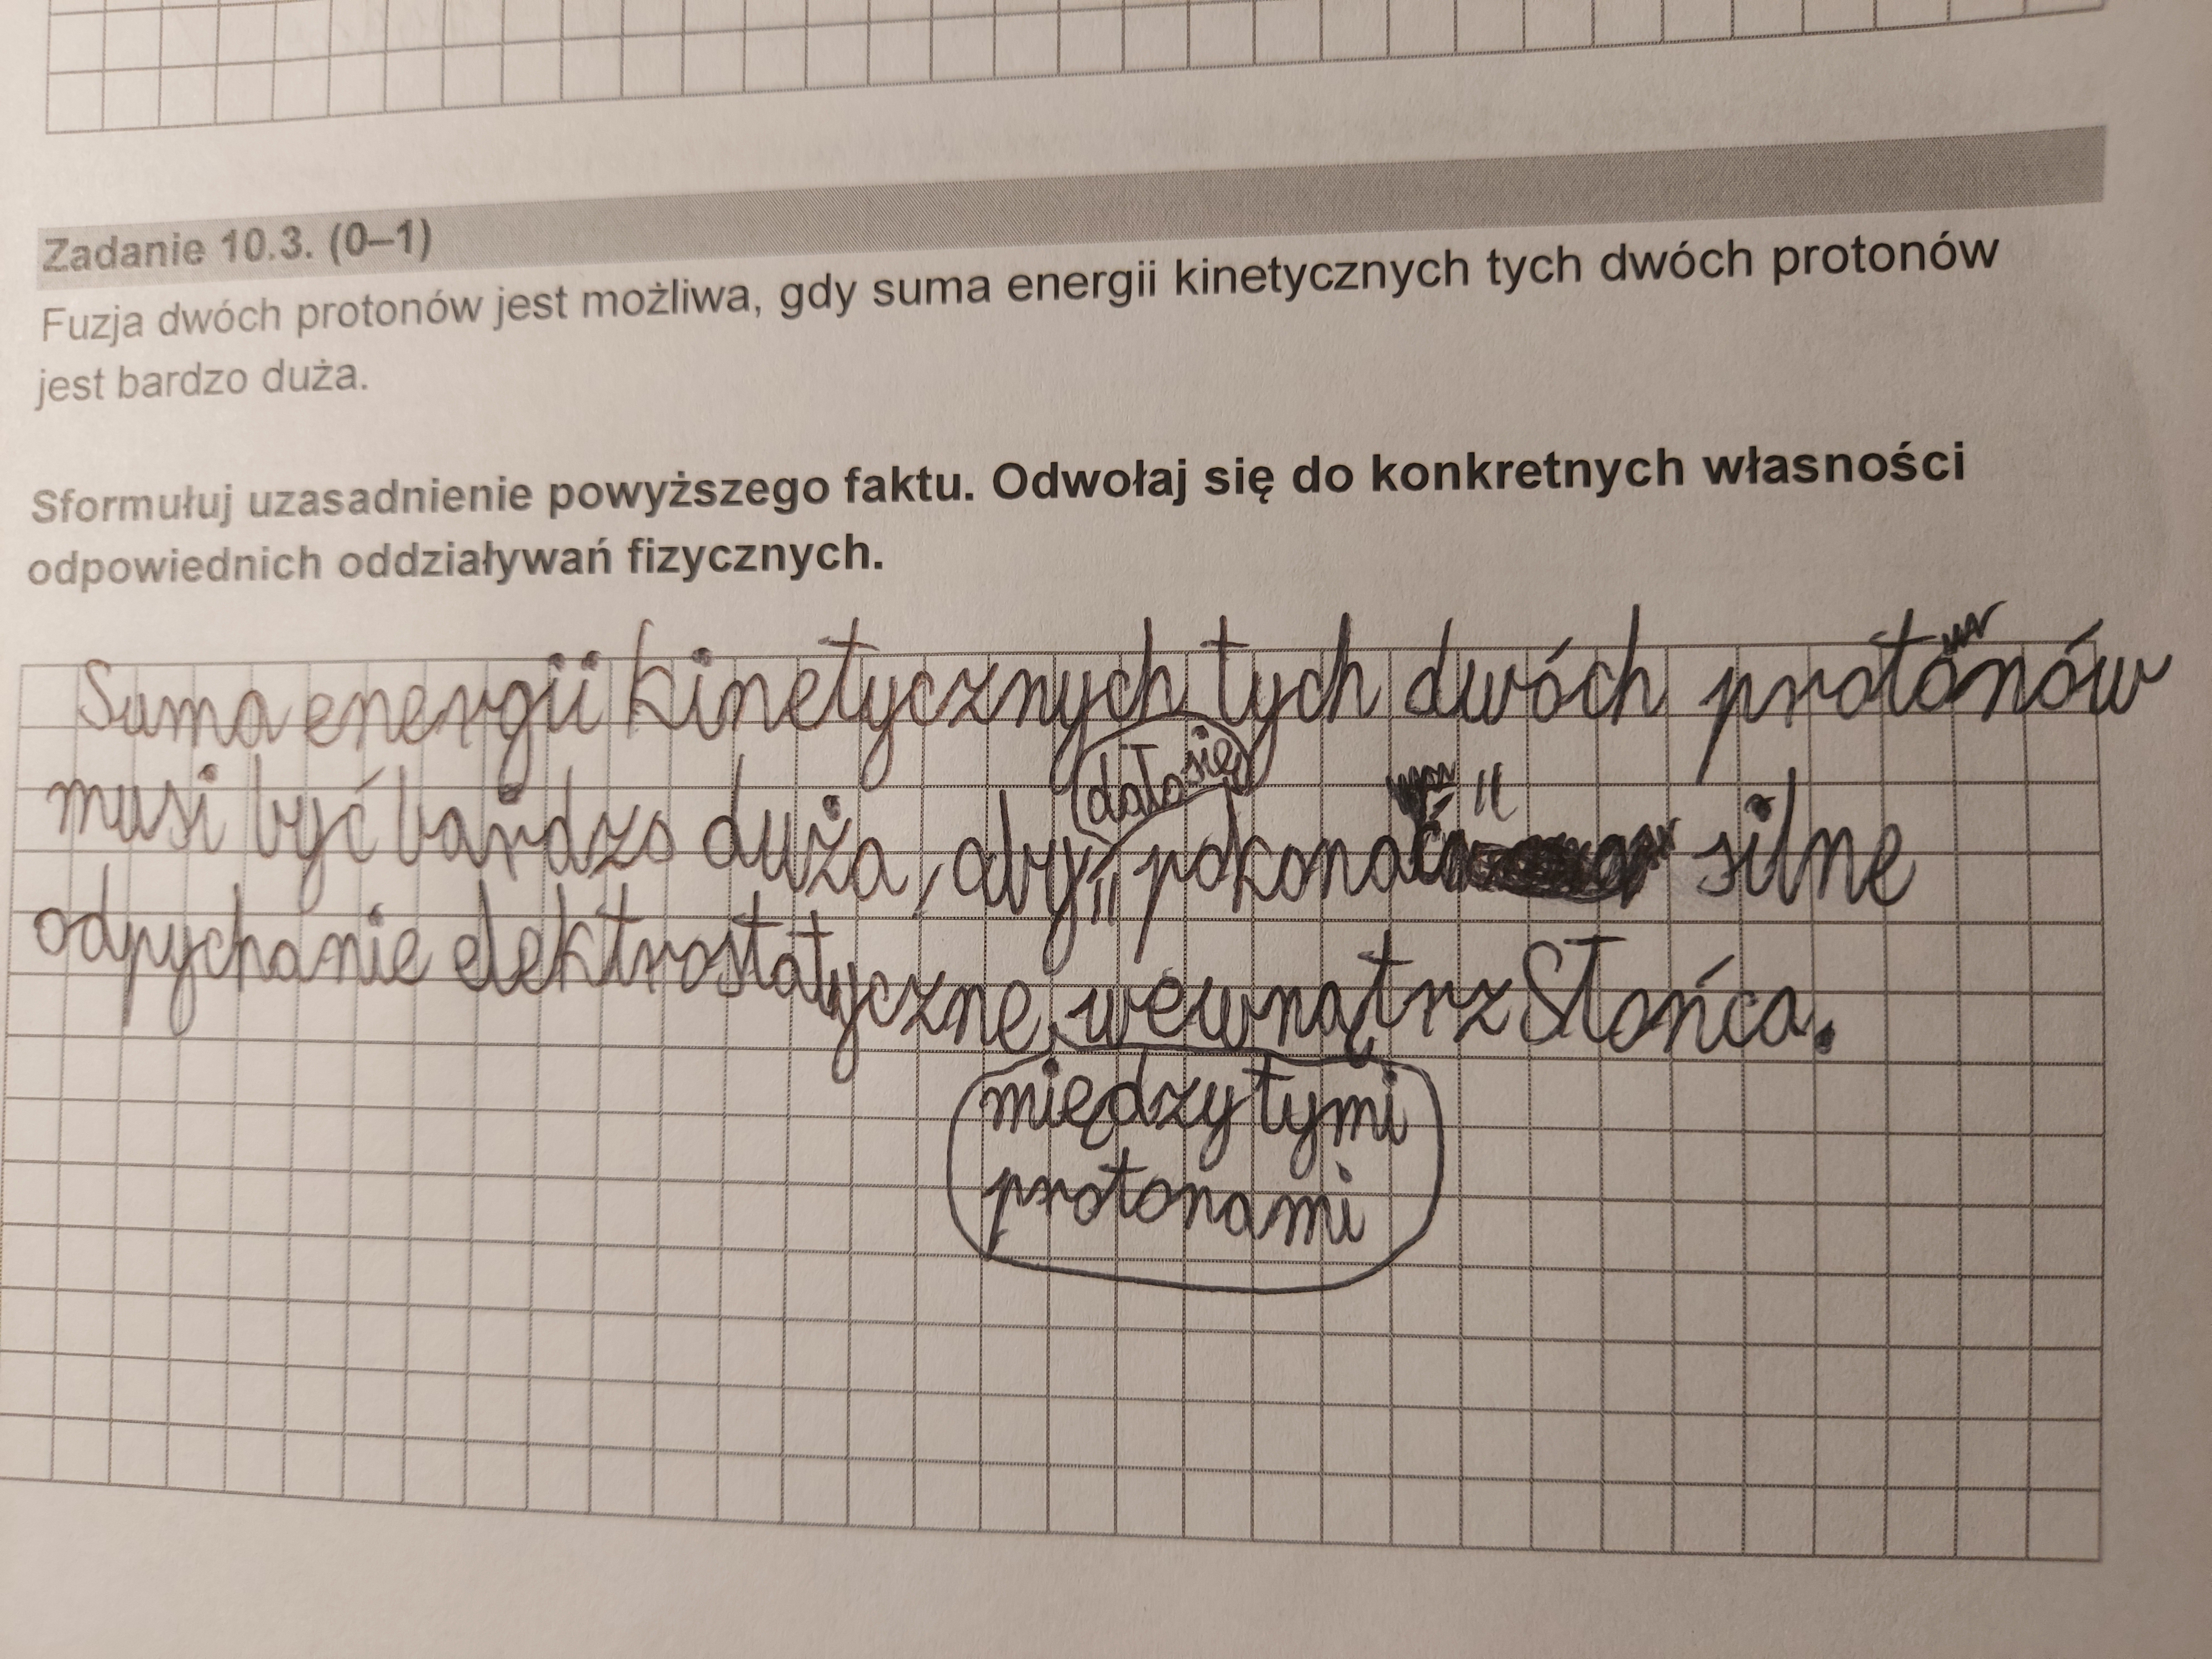 Zadanie 10.3. (0–1)
Fuzja dwóch protonów jest możliwa, gdy suma energii kinetycznych tych dwóch protonów
jest bardzo duża.
Sformułuj uzasadnienie powyższego faktu. Odwołaj się do konkretnych własności
odpowiednich oddziaływań fizycznych.
Suma energii kinetycznych tych dwóch protonów
dało się
musi być bardzo duża, aby pokonać silne
odpychanie elektrostatyczne wewnątrz Słońca.
między tymi
protonami